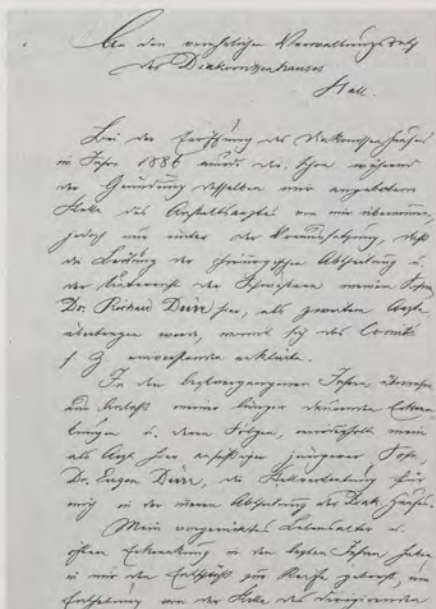 An den verehrlichen Verwaltungsrath
des Diakonissenhauses
Hall.
Bei der Eröffnung des Diakonissenhauses
im Jahre 1886 wurde die, schon während
der Gründung desselben mir angebotene
Stelle des Anstaltsarztes von mir übernommen,
jedoch nur unter der Voraussetzung, daß
die Leitung der chirurgischen Abtheilung u.
der Unterricht der Schwestern meinem Sohne
Dr. Richard Dürr hier, als zweiten Arzte
übertragen werde, womit sich das Comité
s. Z. einverstanden erklärte.
In den letztvergangenen Jahren,
aus Anlaß meiner länger dauernden Erkran-
kungen u. deren Folgen, mein
als Arzt hier ansässiger jüngerer Sohn,
Dr. Eugen Dürr, die Stellvertretung für
mich in der inneren Abtheilung des Diak. Hauses.
Mein vorgerücktes Lebensalter u.
öftere Erkrankung in den letzten Jahren haben
in mir den Entschluß zur Reife gebracht, um
Enthebung von der Stelle des dirigirenden